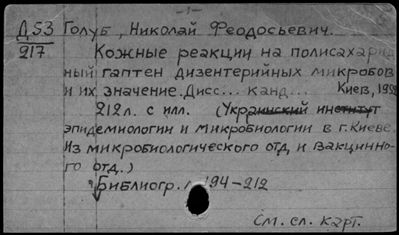 -1-
Д53 Голуб, Николай Феодосьевич.
217 Кожные реакции на полисахарид
ный гаптен дизентерийных микробов
и их значение. Дисс... канд... Киев, 1958
212 л. с илл. (Украинский институт
эпидемиологии и микробиологии в г. Киеве
Из микробиологического отд. и вакцинно-
го отд.)
Библиогр. л. 194-212
См. сл. карт.